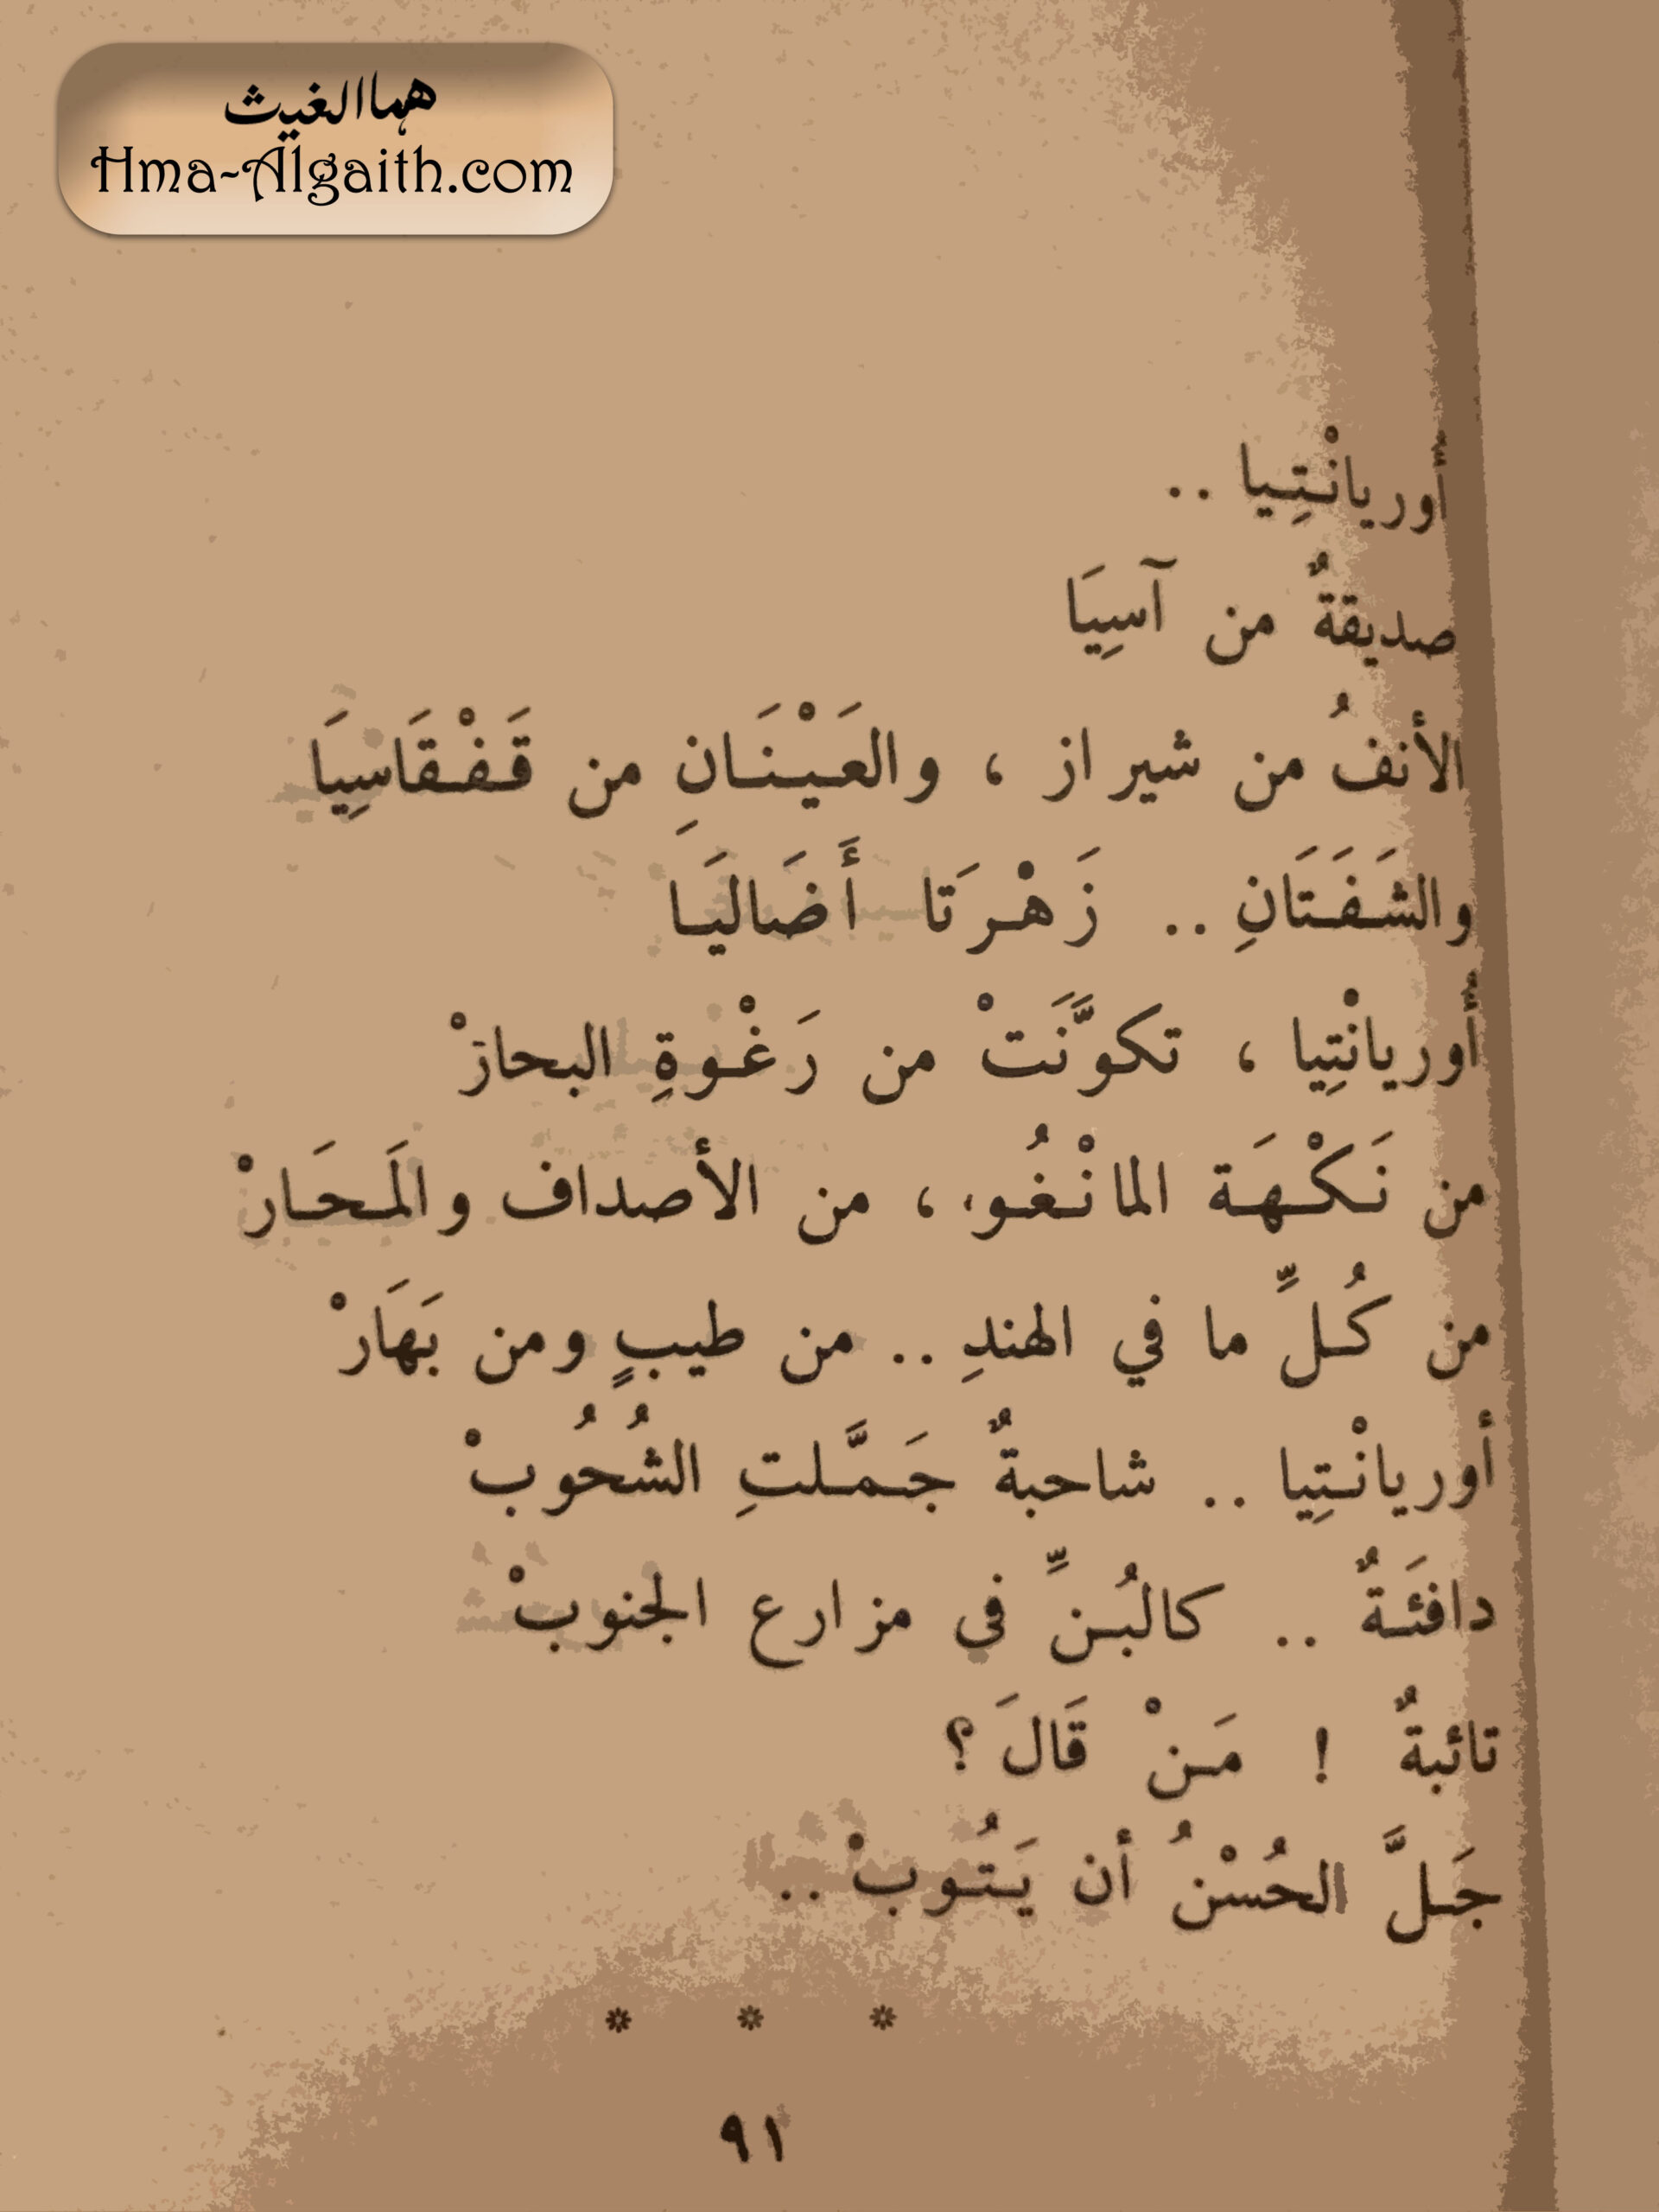 هما الغيث
Hma-Algaith.com
أُوريانْتِيا ..
صديقةٌ من آسِيَا
الأنفُ من شيراز ، والعَيْنَانِ من قَفْقَاسِيَا
والشَفَتَانِ .. زَهْرَتَا أَضَاليَا
أُوريانْتِيا ، تكوَّنَتْ من رَغْوةِ البحارْ
من نَكْهَة المانْغُو ، من الأصداف والمَحَارْ
من كُلِّ ما في الهندِ .. من طيبٍ ومن بَهَارْ
أوريانْتِيا .. شاحبةٌ جَمَّلتِ الشُحُوبْ
دافئَةٌ .. كالبُنِّ في مزارع الجنوبْ
تائبةٌ ! مَنْ قَالَ ؟
جَلَّ الحُسْنُ أن يَتُوبْ ..
* * *
٩١